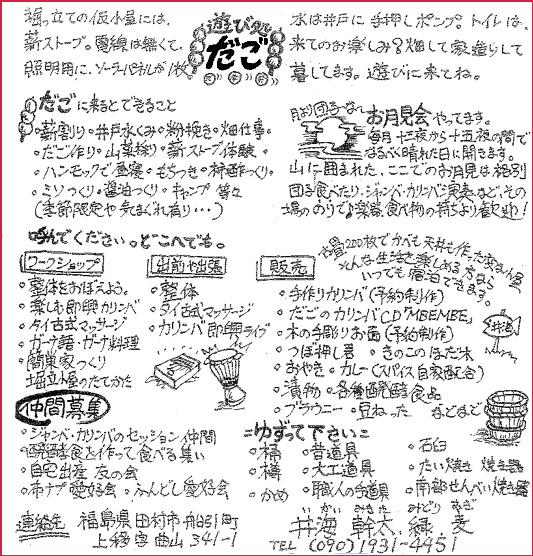 掘っ立ての仮小屋には、
薪ストーブ。電線は無くて、
照明用に、ソーラーパネルが1枚
遊び処
だご
水は井戸に手押しポンプ。トイレは、
来てのお楽しみ♀畑して家造りして
暮してます。遊びに来てね。
だごに来るとできること
・薪割り・井戸水くみ・粉挽き・畑仕事
・だご作り・山菜採り・薪ストーブ体験
・ハンモックで昼寝・もちつき・柿酢づくり
・ミソつくり・醤油づくり・キャンプ 等々
(季節限定や気まぐれ有り・・・)
月より団子な〜い
お月見会やってます。
毎月十三夜から十五夜の間で
なるべく晴れた日に開きます。
山に囲まれた、ここでのお月見は格別
団子食べたり、ジャンベ・カリンバ演奏など、その
場ののりで♪楽器、食べ物の持ちより歓迎!
呼んでください。どこへでも。
ワークショップ
・整体をおぼえよう。
・楽しむ即興カリンバ
・タイ古式マッサージ
・ガーナ語・ガーナ料理
・簡単家つくり
掘立小屋のたてかた
出前や出張
・整体
・タイ古式マッサージ
・カリンバ即興ライブ
古畳200枚でかべも天井も作った家な小屋
そんな生活を楽しめる方なら
いつでも宿泊できます。
販売
・手作りカリンバ(予約制作)
・だごのカリンバCD"MBEMBE"
・木の手彫りお面(予約制作)
・つぼ押し君 ・きのこのほだ木
・おやき・カレー(スパイス自家配合)
・漬物・各種醗酵食品
・ブラウニー・豆ねった などなど
井海
仲間募集
・ジャンベ・カリンバのセッション仲間
・醗酵食を作って食べる集い
・自宅出産 友の会
・布ナプ愛好会・ふんどし愛好会
=ゆずって下さい=
・桶 ・昔道具 ・石臼
・樽 ・大工道具 ・たい焼き焼き器
・かめ ・職人の手道具 ・南部せんべい焼き器
連絡先 福島県田村市船引町
上移字曲山341-1
いかい みきた みどり むぎ
井海 幹太 緑 麦
TEL (090)1931-4451